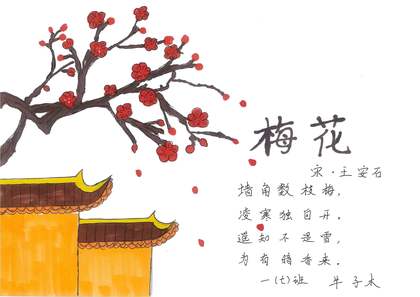 梅花
宋·王安石
墙角数枝梅，
凌寒独自开。
遥知不是雪，
为有暗香来。
一(七)班 牛子木